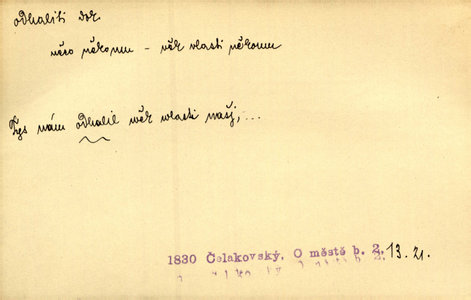 odhaliti dok.
něco někomu – věk vlasti někomu
Tys nám odhalil wěk wlasti našj,...
1830 Čelakovský, O městě b. 2. 13. 21.